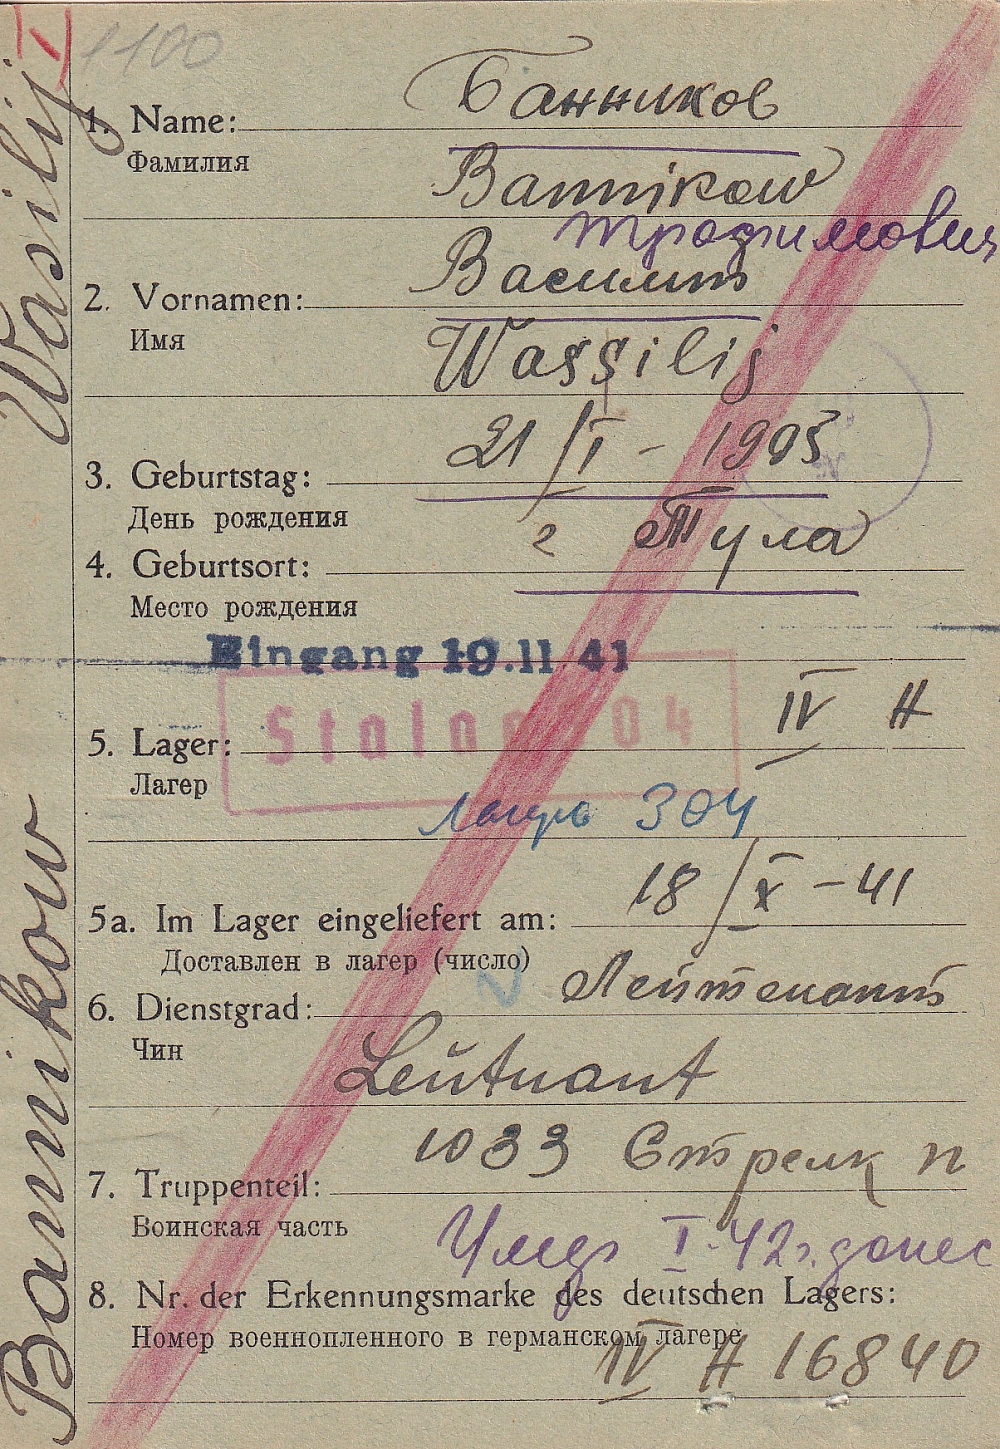 1100
Bannikow Wasilij
1. Name: Банников
Фамилия
Bannikow
Трофимович
2. Vornamen: Василит
Имя
Wassilij
3. Geburtstag: 21/I - 1905
День рождения
4. Geburtsort: г Тула
Место рождения
Eingang 19.11.41
Stalag 304
5. Lager: IV H
Лагер
Лагерь 304
5a. Im Lager eingeliefert am: 18/X - 41
Доставлен в лагер (число)
6. Dienstgrad: Лейтенант
Чин
Leutnant
7. Truppenteil: 1033 Стрелк п
Воинская часть
Умер I-42г. донес
8. Nr. der Erkennungsmarke des deutschen Lagers:
Номер военнопленного в германском лагере
IV H 16840